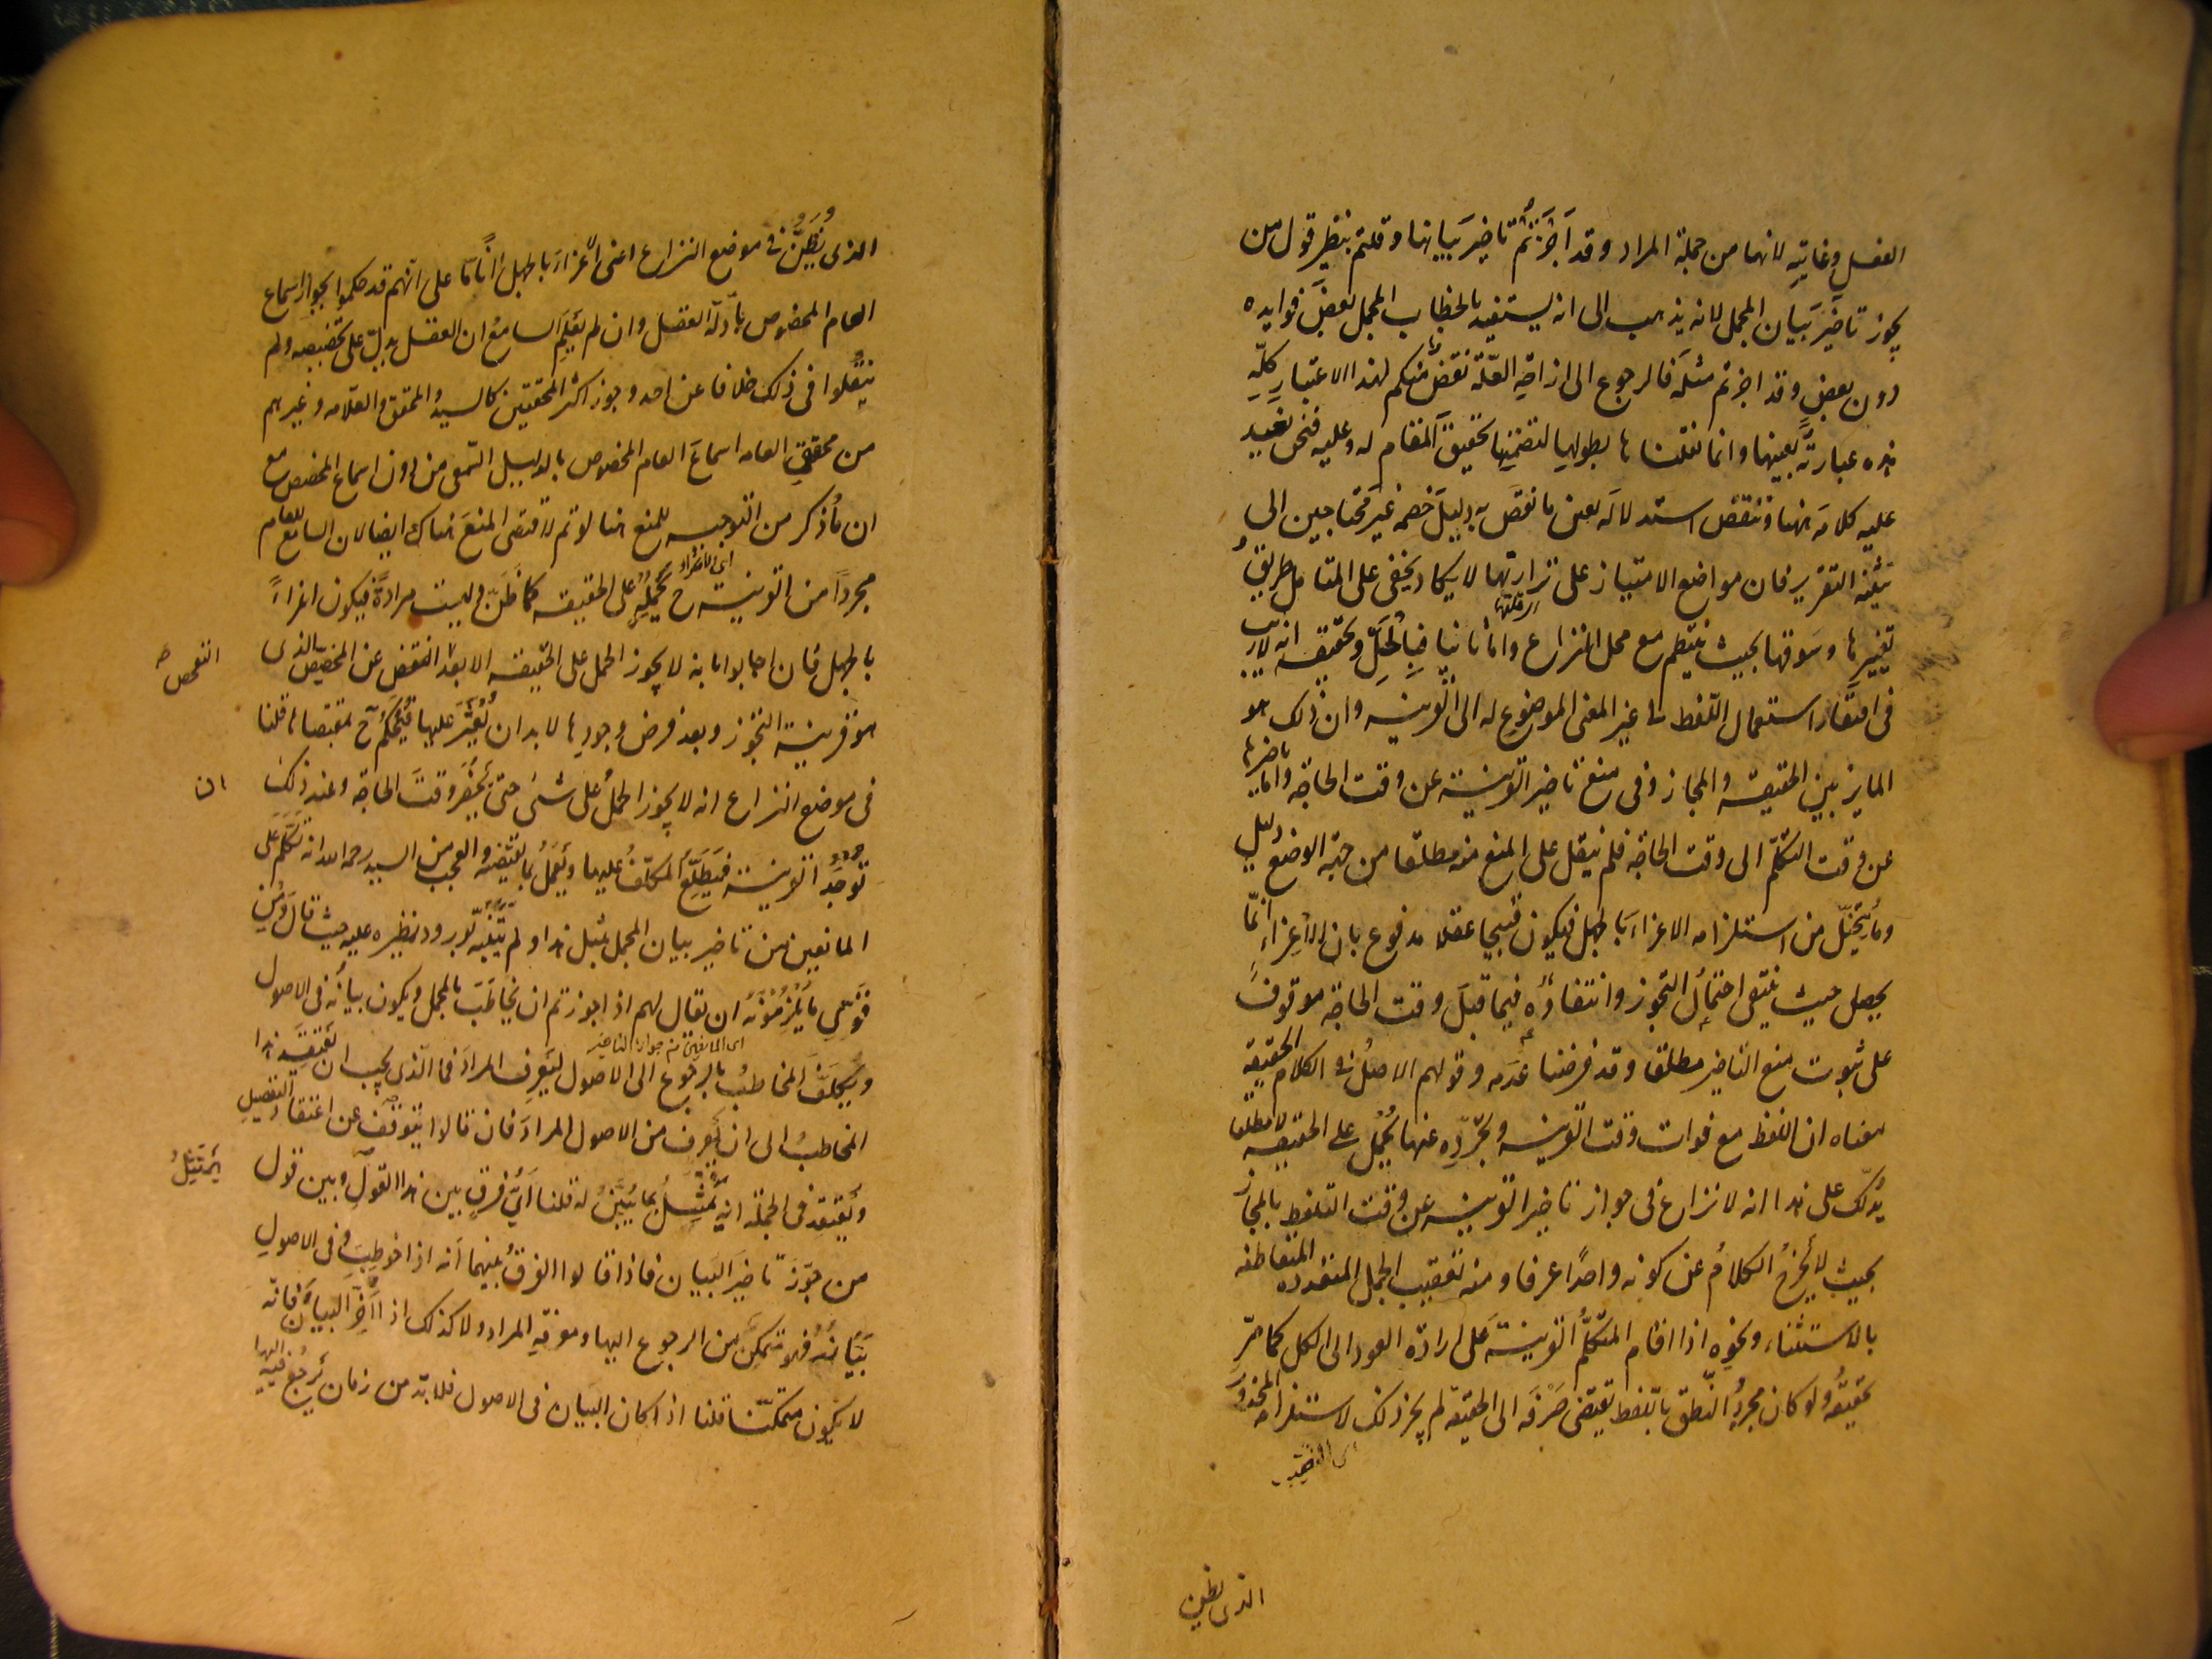 الفعل وغايتِه لانهما من جملة المراد وقد اَجَزتُم تاخيرَ بيانها وقلتم بنظير قول من
يجوز تاخيرَ بيان المجمل لانه يذهب الى انه يستفيد بالخطاب المجمل بعضَ فوايده
دون بعض وقد اجزتم مثله فالرجوع الى ازاحة العلّة نقض منكم لهذا الاعتبار كلّه
هذه عبارتُه بعينها وانما نقلناها بطولها لتضمنها تحقيقَ المقام له وعليه فنحن نعيد
عليه كلامَه ههنا وننقض استدلالَه بعين ما نقض به دليلَ خصمه غير محتاجين الى
تثنية التقرير فان مواضع الامتياز على نزارتها اى قلتها لا يكاد يخفى على المتامل طريق
تغييرها وسَوقها بحيث ينتظم مع محل النزاع واما ثانيا فبالحَلِّ وتحقيقه انه لا ريب
فى افتقار استعمال اللفظ فى غير المعنى الموضوع له الى القرينة وان ذلك هو
المايز بين الحقيقة والمجاز وفى منع تاخير القرينة عن وقت الحاجة واما تاخيرها
عن وقت التكلّم الى وقت الحاجة فلم ينقل على المنع منه مطلقا من جهة الوضع دليل
وما يُتخيّل من استلزامه الاغراءَ بالجهل فيكون قبيحا عقلا مدفوع بان الاغراءَ انّما
يحصل حيث ينتفى احتمالُ التجوز وانتفاؤُه فيما قبلَ وقت الحاجة موقوف
على ثبوت منع التاخير مطلقا وقد فرضنا عدَمه وقولهم الاصلُ فى الكلام الحقيقة
معناه ان اللفظ مع فوات وقت القرينة وتجرّدِه عنها يُحمل على الحقيقة لا مطلقا
يَدُلّك على هذا انه لا نزاع فى جواز تاخير القرينة عن وقت التلفظ بالمجاز
بحيث لا يُخرجُ الكلامُ عن كونه واحدًا عرفا ومنه تعقيب الجمل المتعدده المتعاطفه
بالاستثناء ونحوِه اذا اقام المتكلمُ القرينةَ على ارادة العود الى الكل كما مرّ
تحقيقُه ولو كان مجردُ النطق باللفظ تقتضى صَرْفَه الى الحقيقة لم يجز ذلك لاستلزامه المحذورَ
الذى يظن
الذى يُظَنُّ فى موضع النزاع اعنى الاغراءَ بالجهل آنًا مّا على انهم قد حكموا بجواز اسماع
العام المخصوص بادلّة العقل وان لم يَعلَمِ السامعُ ان العقل يدلّ على تخصيصه ولم
ينقُلوا فى ذلك خلافا عن احد وجوز اكثر المحققين كالسيد والمحقق والعلامه وغيرهم
من محققى العامه اسماعَ العام المخصوص بالدليل السّمعى من دون اسماع المخصص مع
ان ما ذُكر من التوجيه للمنع هنا لو تم لاقتضى المنعَ هناك ايضا لان السامع للعام
مجرداً من القرينة ح يَحمِلُه على الحقيقه كما ظُنّ وليست مرادةً فيكون اغراءً
اى الاغراء
بالجهل فان اجابوا بانه لا يجوز الحمل على الحقيقه الا بعد التفحص عن المخصص الذى
التفحص صح
هو قرينة التجوز وبعد فرض وجودها لا بد ان يُعثَر عليها فيُحكَم ح بمقتضاها قلنا
فى موضع النزاع انه لا يجوز الحملُ على شئ حتى يَحضُرَ وقتُ الحاجة وعند ذلك
ان
تُوجَدُ القرينة فيَطَّلِعُ المكلّفُ عليها ويَعمَلُ بما تقتضيه والعجب من السيد رحمه الله انه تكلّم على
المانعين من تاخير بيان المجمل بمثل هذا ولم يَتَنَبَّه لورود نظيره عليه حيث قال ومن
قوىّ ما يُلزَمُونَه ان يقال لهم اذا جوزتم ان يخاطَبَ بالمجمل ويكون بيانُه فى الاصول
اى المانعين من جواز التاخير
ويُكلَّفَ المخاطبُ بالرجوع الى الاصول ليَعرِف المرادَ فما الذى يجب ان يَعتقِدَ هذا
المخاطبُ الى ان يَعرِف من الاصول المرادَ فان قالوا يتوقّف عن اعتقاد التفصيل
ويَعتقد فى الجملة انه يَمتثِلُ بما يُبيَّن له قلنا اَىُّ فرقٍ بين هذا القول وبين قول
يَمتثِلُ
من جوّز تاخيرَ البيان فاذا قالوا الفرقُ بينهما اَنه اذا خوطِبَ وفى الاصول
بَيَانُه فهو متمكِّن من الرجوع اليها ومعرفةِ المراد ولا كذلك اذا اُخِّرَ البيانُ فانه
لا يكون متمكّنا قلنا اذا كان البيان فى الاصول فلا بدّ من زمان يَرجِعُ فيه اليها